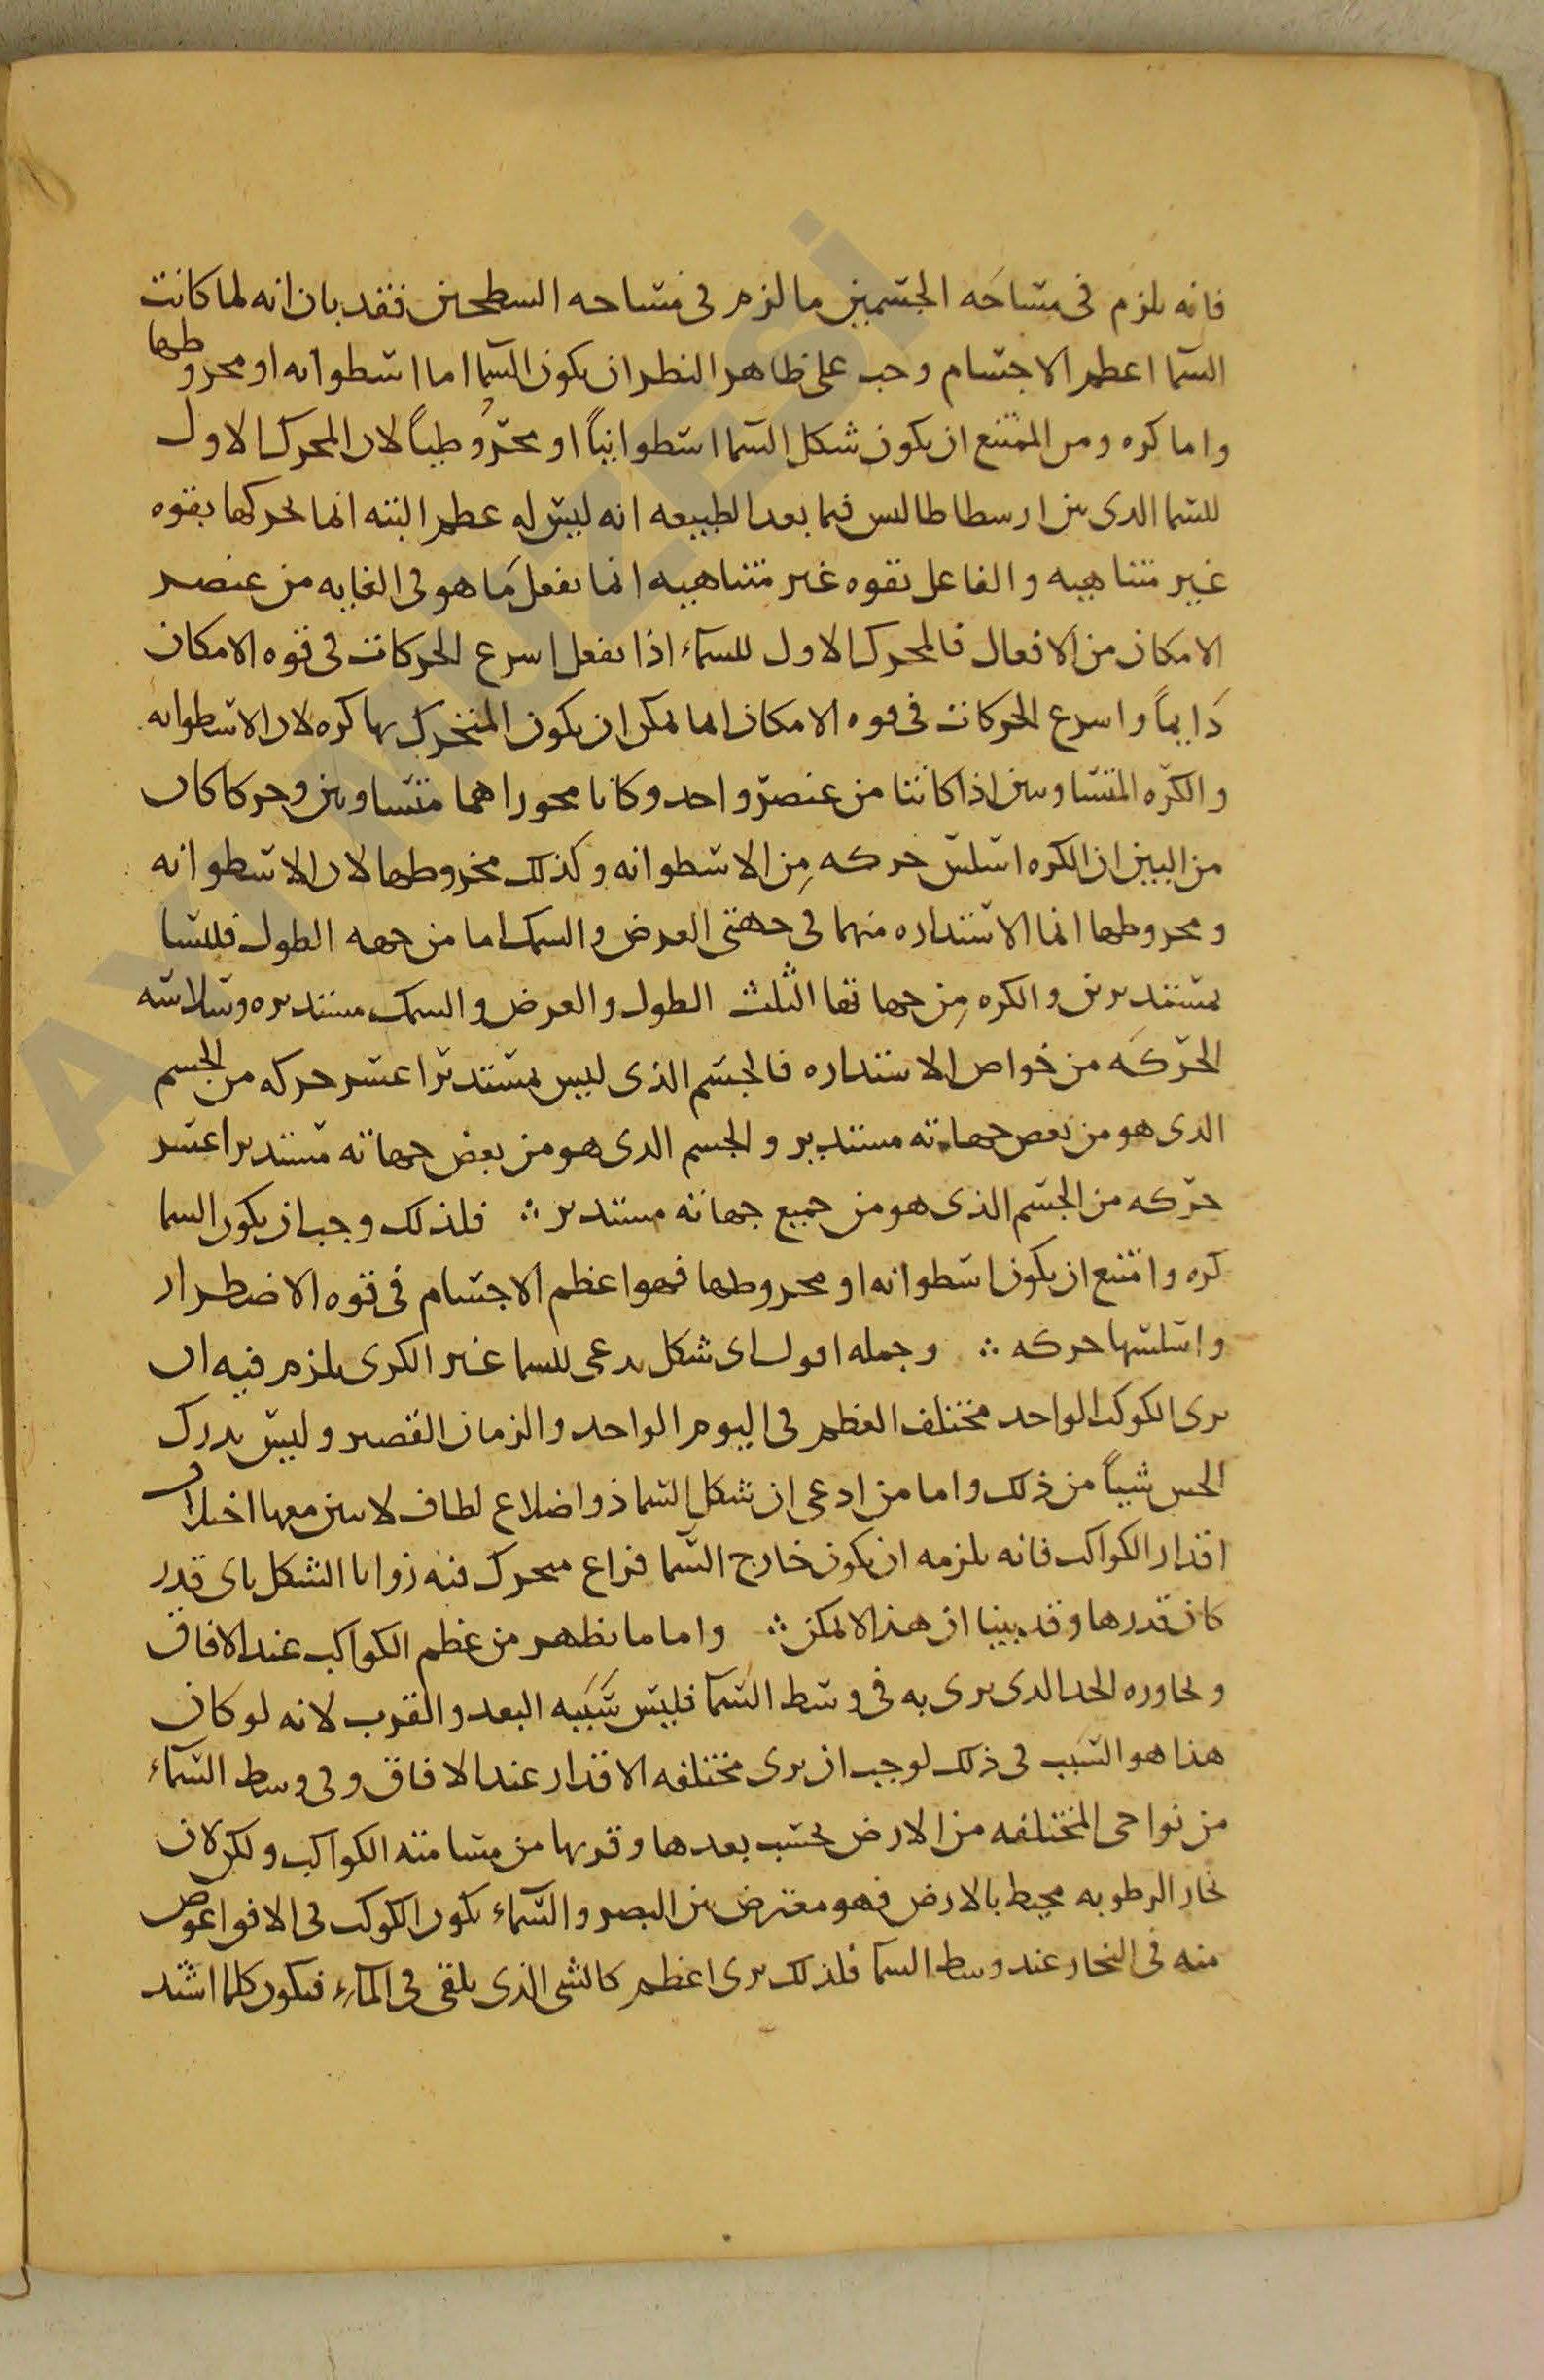 فانه يلزم فى مساحه الجسمين ما لزم فى مساحه السطحين فقد بان انه لما كانت
السما اعظم الاجسام وجب على ظاهر النظر ان يكون السما اما اسطوانه او مخروطها
واما كره ومن الممتنع ان يكون شكل السما اسطوانياً او مخروطياً لان المحرك الاول
للسما الدى بين ارسطاطالس فيما بعد الطبيعه انه ليس له عظم البته انما يحركها بقوه
غير متناهيه والفاعل بقوه غير متناهيه انما يفعل ما هو فى الغايه من عنصر
الامكان من الافعال فالمحرك الاول للسماء اذا يفعل اسرع الحركات فى قوه الامكان
دايماً واسرع الحركات فى قوه الامكان انما يمكن ان يكون المتحرك بها كره لان الاسطوانه
والكره المتساويين اذا كانتا من عنصر واحد وكانا محوراهما متساويين وحركا كان
من البين ان الكره اسلس حركه من الاسطوانه وكذلك مخروطها لان الاسطوانه
ومخروطها انما الاستداره منهما فى جهتى العرض والسمك اما من جهه الطول فليسا
بمستديرين والكره من جهاتها الثلث الطول والعرض والسمك مستديره وسلاسه
الحركه من خواص الاستداره فالجسم الذى ليس بمستدير اعسر حركه من الجسم
الدى هو من بعض جهاته مستدير والجسم الدى هو من بعض جهاته مستدير اعسر
حركه من الجسم الذى هو من جميع جهاته مستدير ∴ فلذلك وجب ان يكون السما
كره وامتنع ان يكون اسطوانه او مخروطها فهو اعظم الاجسام فى قوه الاضطرار
واسلسها حركه ∴ وجمله اقول اى شكل يدعى للسما غير الكرى يلزم فيه ان
يرى الكوكب الواحد مختلف العظم فى اليوم الواحد والزمان القصير وليس يدرك
الحس شيياً من ذلك واما من ادعى ان شكل السما ذو اضلاع لطاف لا يبين معها اختلاف
اقدار الكواكب فانه يلزمه ان يكون خارج السما فراغ يتحرك فيه زوايا الشكل باى قدر
كان قدرها وقد بينا ان هذا لا يمكن ∴ واما ما يظهر من عظم الكواكب عند الافاق
وتجاوزه الحد الدى يرى به فى وسط السما فليس سببه البعد والقرب لانه لو كان
هذا هو السبب فى ذلك لوجب ان يرى مختلفه الاقدار عند الافاق وفى وسط السماء
من نواحى المختلفه من الارض بحسب بعدها وقربها من مسامته الكواكب ولكن لان
بخار الرطوبه محيط بالارض فهو معترض بين البصر والسماء يكون الكوكب فى الافق اغوص
منه فى البخار عند وسط السما فلذلك يرى اعظم كالشى الذى يلقى فى الماء فيكون كلما اشتد